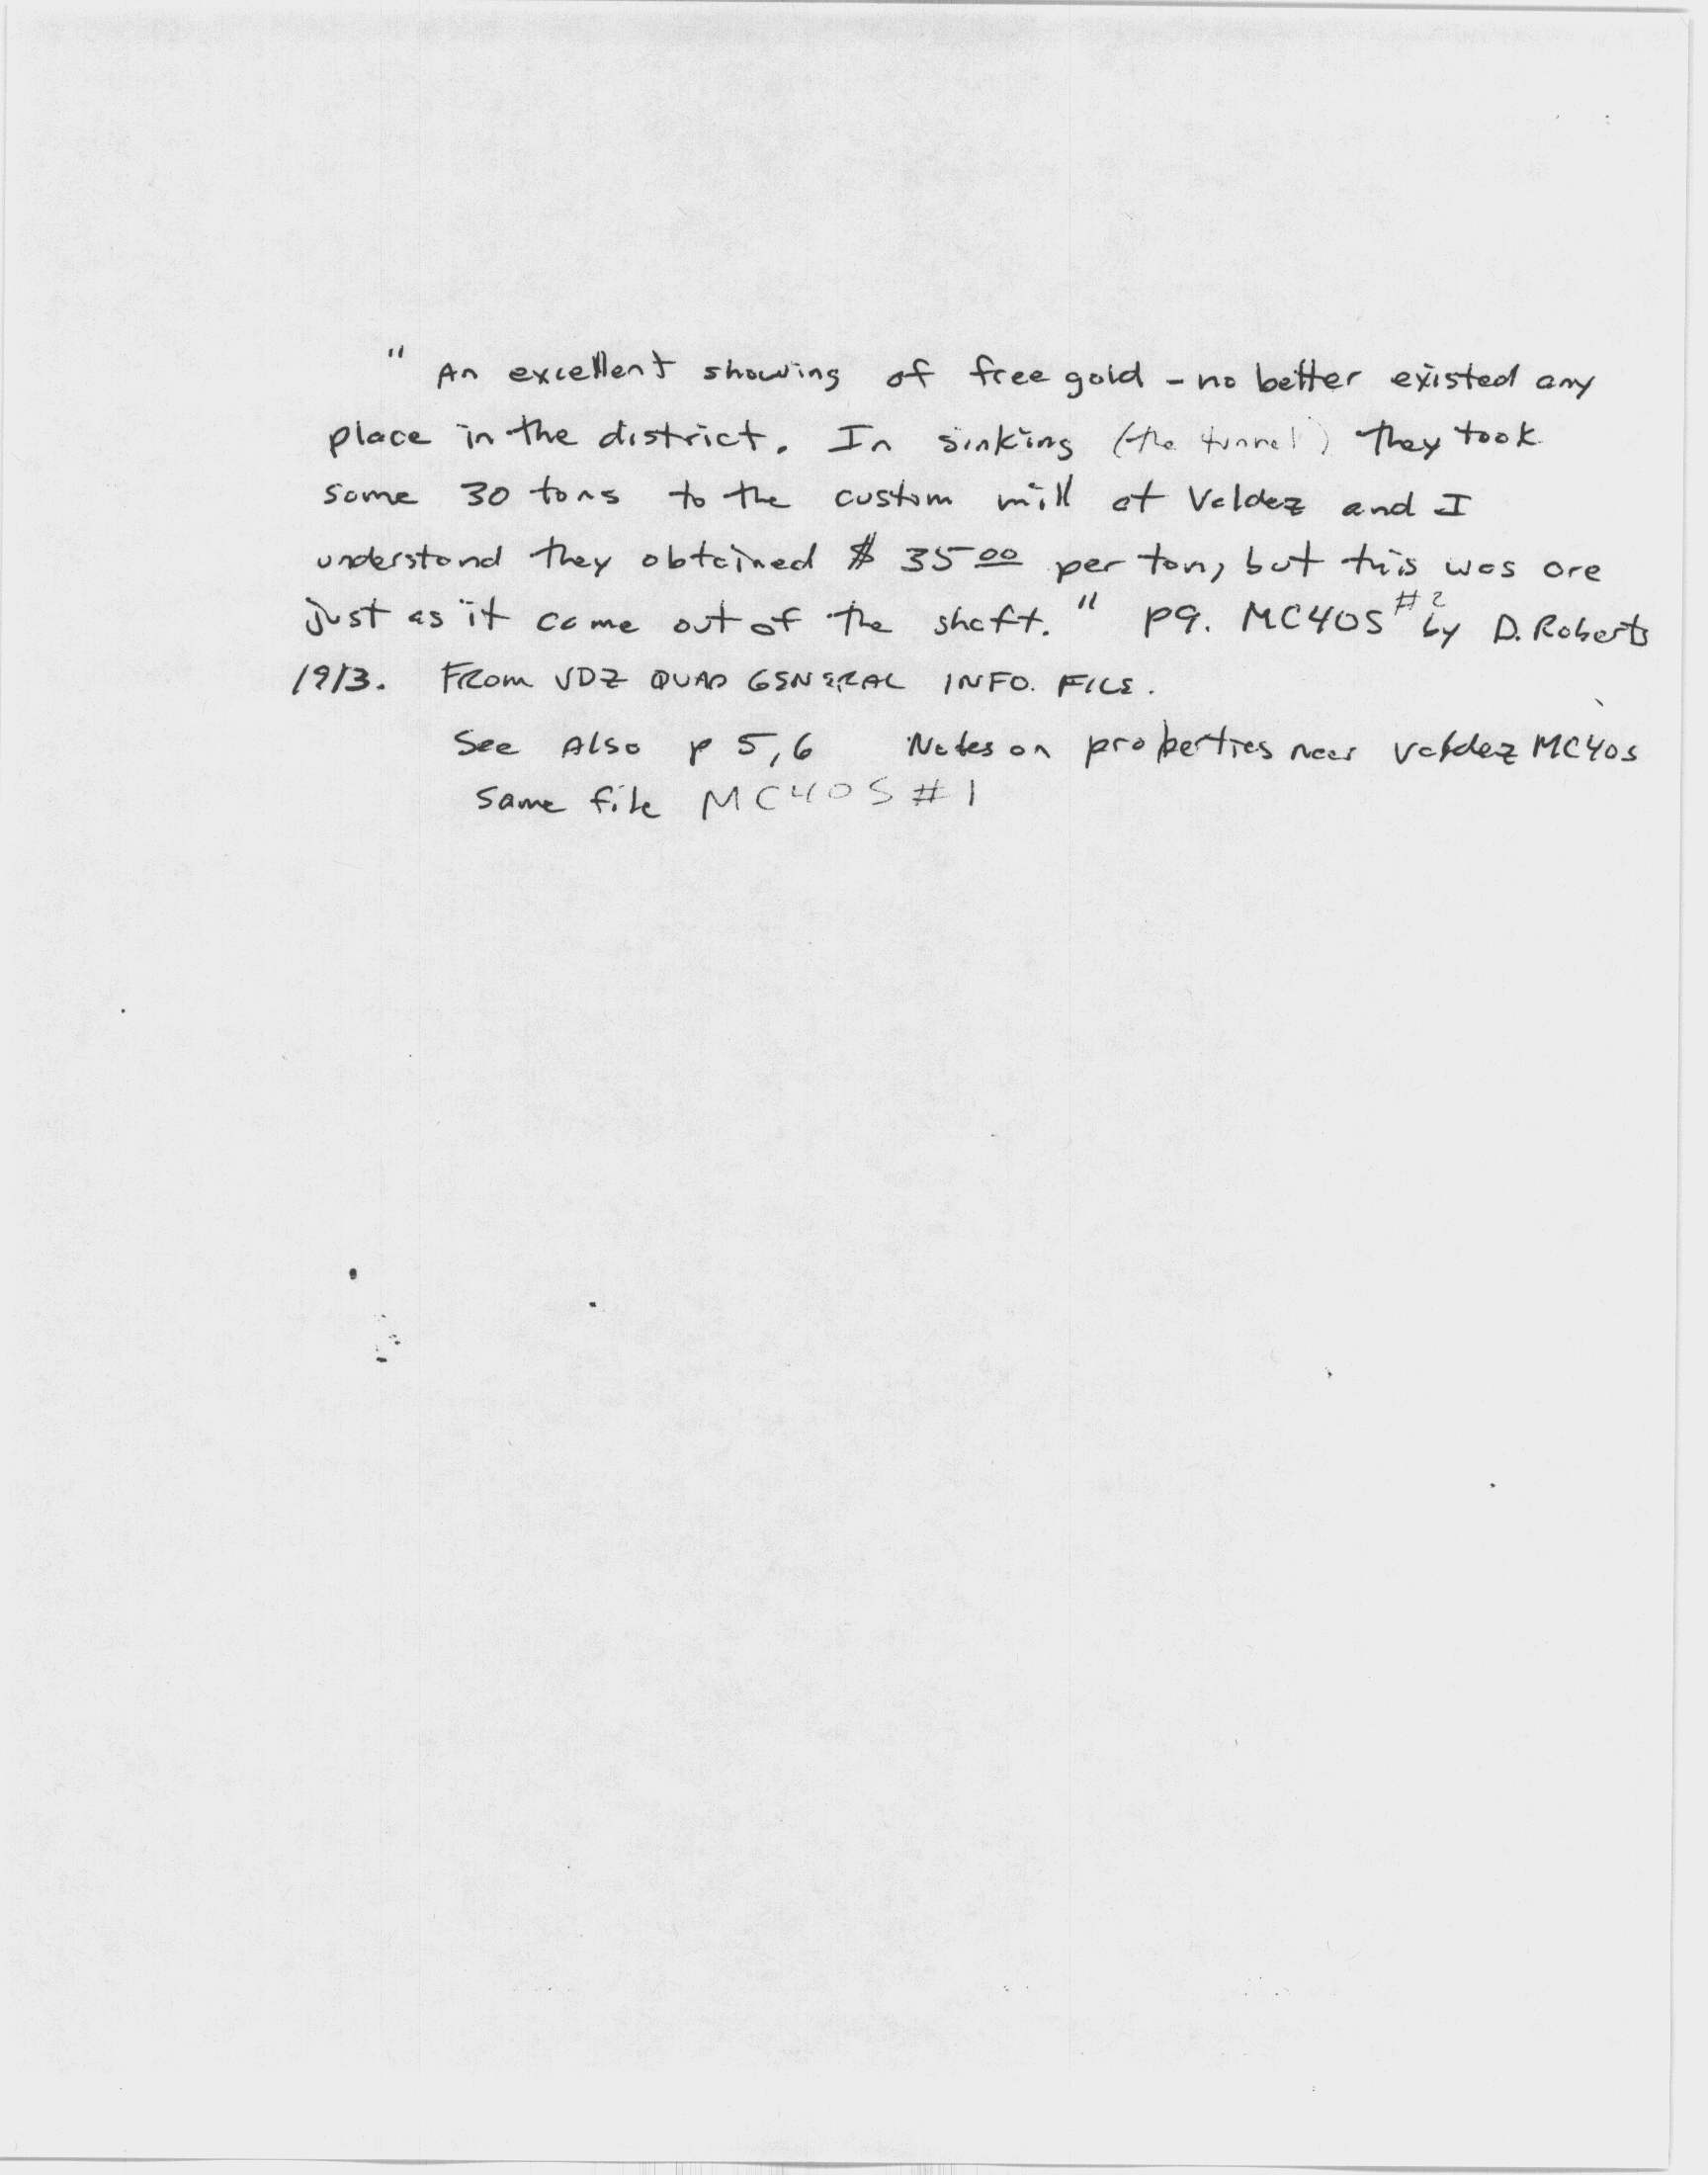 " An excellent showing of free gold - no better existed any
place in the district. In sinking (the tunnel) they took
some 30 tons to the custom mill at Valdez and I
understand they obtained $ 35 00 per ton, but this was ore
just as it came out of the shaft. " p9. MC40S #2 by D. Roberts
1913. FROM VDZ QUAD GENERAL INFO. FILE.
See Also p 5,6 Notes on properties near Valdez MC40S
Same file MC40S #1